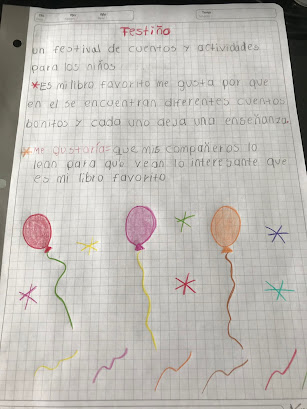 Festiño
un festival de cuentos y actividades
para los niños
*Es mi libro favorito me gusta por que
en el se encuentran diferentes cuentos
bonitos y cada uno deja una enseñanza
*Me gustaría= que mis compañeros lo
lean para que vean lo interesante que
es mi libro favorito